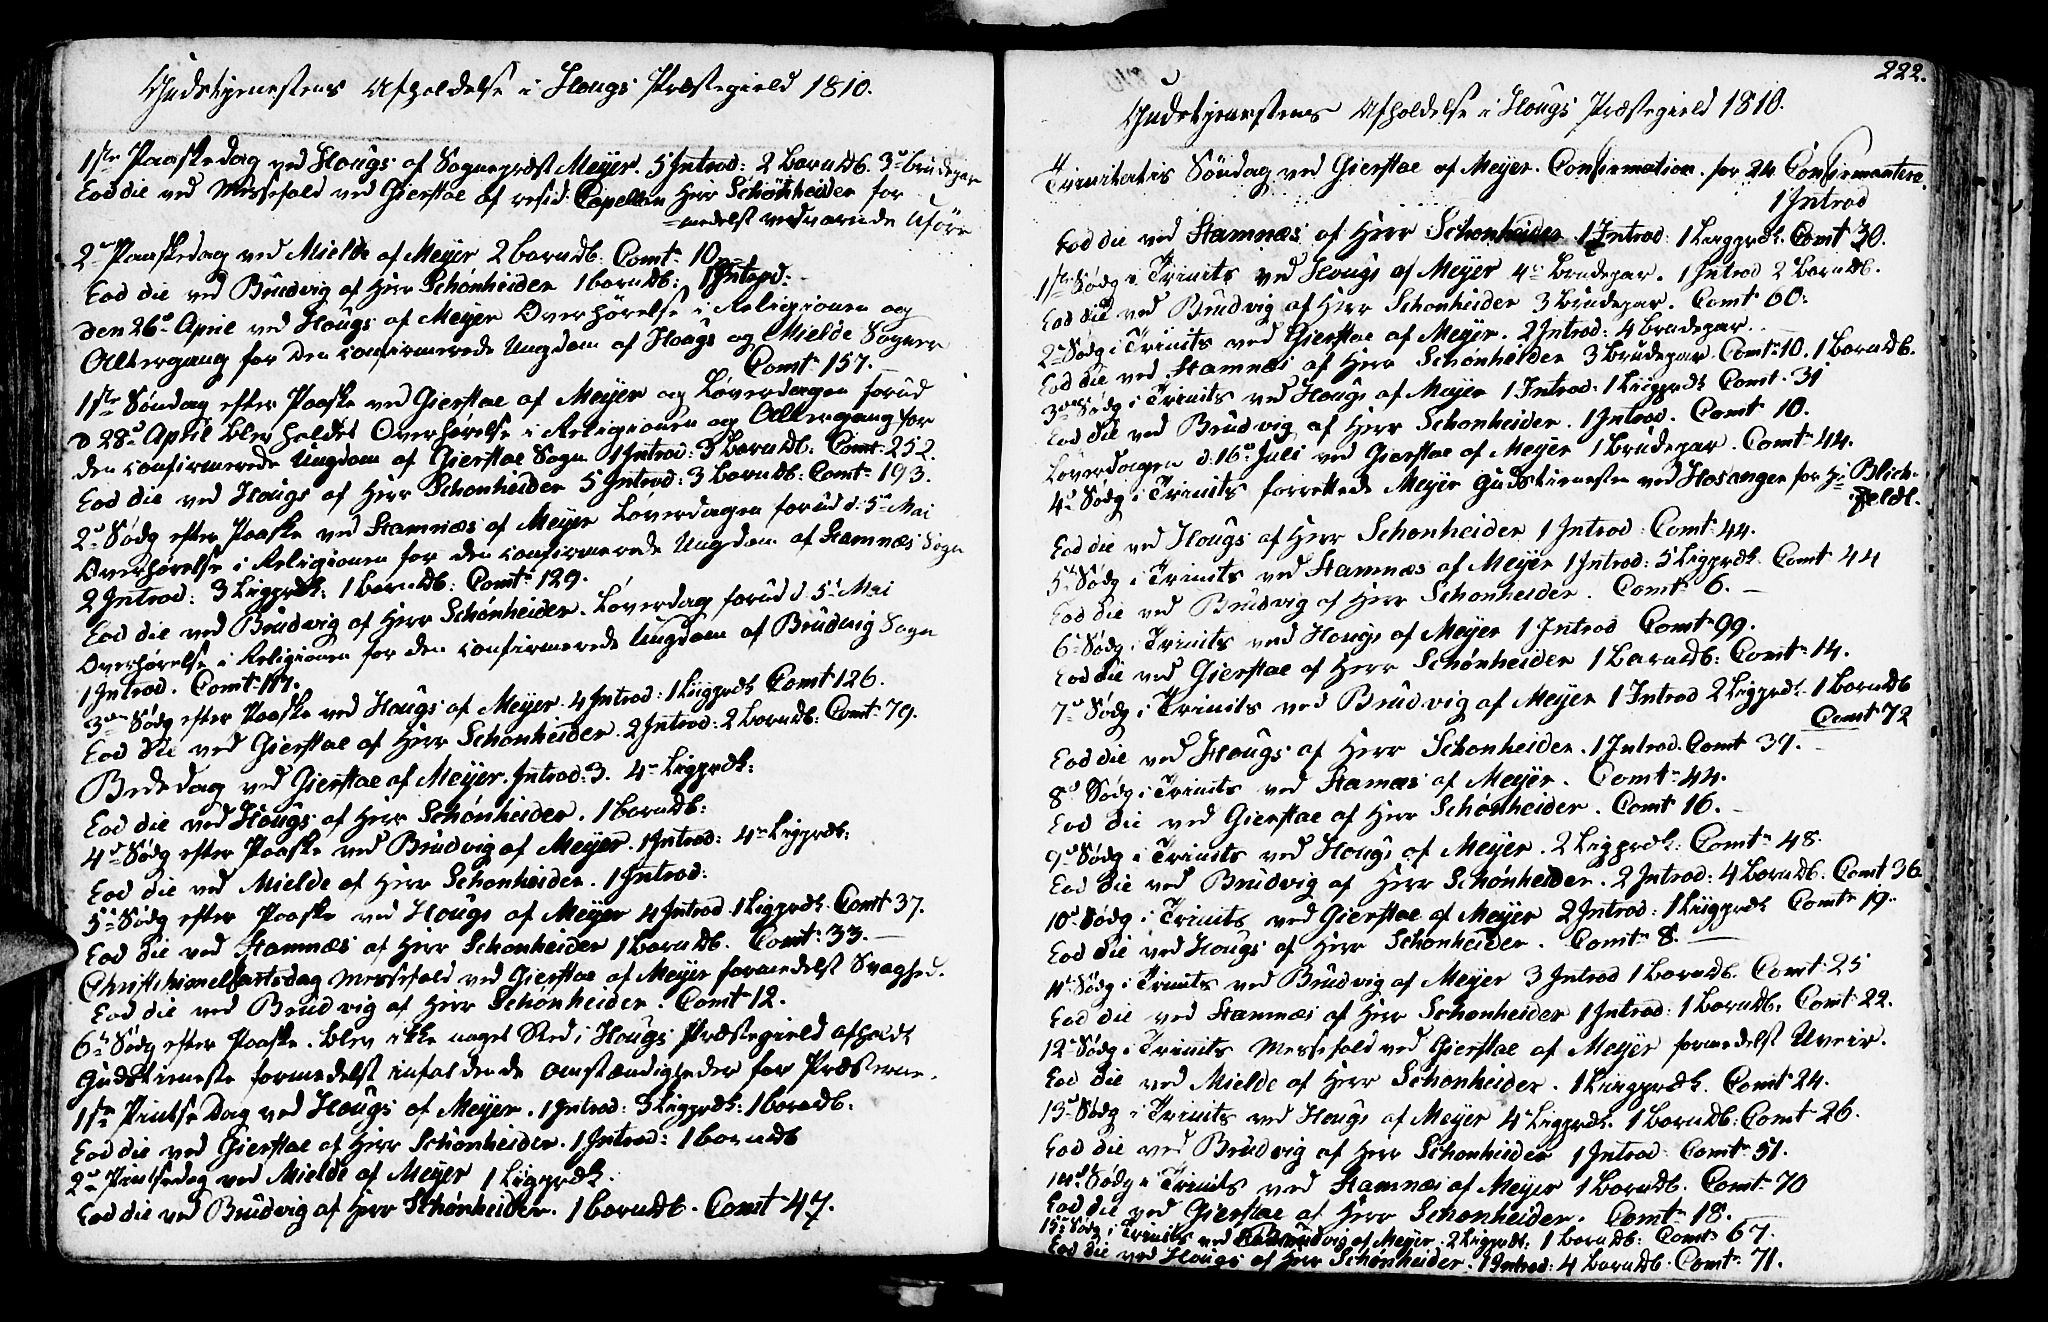 Gudstjenestens Afholdelse i Hougs Præstegield 1810.
1ste Paaskedag ved Hougs af Sognepræst Meyer. 5 Introd: 2 barndb. 3de brudepar
Eod die ved Messefald ved Gierstae af resid: Capellan Herr Schønheider for
=medelst vedvarende Uføre
2den Paaskedag ved Mielde af Meyer 2 barndb. Comt. 10
Eod die ved Brudvig af Herr Schønheider 1 barndb: 1 Introd:
den 26de April ved Hougs af Meyer Overhørelse i Religionen og
Altergang for den confirmerede Ungdom af Hougs og Mielde Sogner
Comt. 157.
1ste Søndag efter Paaske ved Gierstae af Meyer og Løverdagen forud
d 28de April blev holdet Overhørelse i Religionen og Altergang for
den confirmerede Ungdom af Gierstae Sogn 1 Introd: 3 barndb. Comt. 252.
Eod die ved Hougs af Herr Schønheider 5 Introd: 3 barndb: Comt. 193.
2den Sødg efter Paaske ved Stamnæs af Meyer Løverdagen forud d. 5te Mai
Overhørelse i Religionen for den confirmerede Ungdom af Stamnæs Sogn
2 Introd: 3 Ligprdk: 1 barndb: Comt. 129.
Eod die ved Brudvig af Herr Schønheider. Løverdag forud d 5te Mai
Overhørelse i Religionen for den confirmerede Ungdom af Brudvig Sogn
1 Introd. Comt. 117.
3die Sødg efter Paaske ved Hougs af Meyer 4 Introd: 1 Liigprdk Comt 126.
Eod die ved Gierstae af Herr Schønheider 2 Introd: 2 barndb: Comt. 79.
Bededag ved Gierstae af Meyer. Introd: 3. 4re Ligprdk:
Eod die ved Hougs af Herr Schønheider. 1 barndb:
4de Sødg efter Paaske ved Brudvig af Meyer. 1 Introd: 4re Ligprdk:
Eod die ved Mielde af Herr Schønheider. 1 Introd:
5te Sødg efter Paaske ved Hougs af Meyer 4 Introd 1 Ligprdk. Comt 37.
Eod die ved Stamnæs af Herr Schønheider 1 barndb. Comt: 33.
Christi himelfartsdag Messefald ved Gierstae af Meyer formedelst Svaghed.
Eod die ved Brudvig af Herr Schønheider. Comt 12.
6te Sødg efter Paaske. blev ikke noget Sted i Hougs Præstegield afholdt
Gudstieneste formedelst infaldende omstændigheder for Præsterne.
1ste Pintse Dag ved Hougs af Meyer. 1 Introd: 3 Ligprdk: 1 barndb.
Eod die ved Gierstae af Herr Schønheider. 1 Introd: 1 barndb
2den Pintsedag ved Mielde af Meyer 1 Liigprdk.
Eod die ved Brudvig af Herr Schønheider. 1 barndb. Comt 47.
222.
Gudstjenestens Afholdelse i Hougs Præstegield 1810.
Trinitatis Søndag ved Gierstae af Meyer. Confirmation. for 24 Confirmantere.
1 Introd
Eod die ved Stamnæs af Herr Schønheider 1 Introd: 1 Liigprdk. Comt 30.
1ste Sødg i Trinits ved Hougs af Meyer 4re brudepar. 1 Introd 2 barndb.
Eod die ved Brudvig af Herr Schønheider 3 brudepar. Comt 60:
2den Sødg i Trinits ved Gierstae af Meyer. 2 Introd: 4 brudepar.
Eod die ved Stamnæs af Herr Schønheider 3 brudepar. Comt. 10. 1 barndb.
3die Sødg i Trinits ved Hougs af Meyer 1 Introd: 1 Liigprdk Comt. 31
Eod die ved Brudvig af Herr Schønheider. 1 Introd. Comt 10.
Løverdagen d: 16de Juli ved Gierstae af Meyer 1 brudepar. Comt. 44.
4de Sødg i Trinits forrettede Meyer Gudstienesten ved Hosanger for Hr Blich-
feldt.
Eod die ved Hougs af Herr Schønheider 1 Introd. Comt. 44.
5te Sødg i Trinits ved Stamnæs af Meyer 1 Introd: 5 Ligprdk. Comt 44
Eod die ved Brudvig af Herr Schønheider. Comt. 6.
6te Sødg i Trinits ved Hougs af Meyer 1 Introd Comt. 99.
Eod die ved Gierstae af Herr Schønheider 1 barndb: Comt. 14.
7de Sødg i Trinits ved Brudvig af Meyer 1 Introd 2 Ligprdk. 1 barndb
Comt 72
Eod die ved Hougs af Herr Schønheider. 1 Introd. Comt 39.
8de Sødg i Trinits ved Stamæs af Meyer. Comt. 44.
Eod die ved Gierstae af Herr Schønheider. Comt 16.
9de Sødg i Trinits ved Hougs af Meyer. 2 Ligprdk: Comt. 48.
Eod die ved Brudvig af Herr Schønheider. 2 Introd: 4 barndb. Comt 36
10de Sødg i Trinits ved Gierstae af Meyer 2 Introd: 1 Liigprdk Comt. 19.
Eod die ved Hougs af Herr Schønheider. Comt. 8.
11te Sødg i Trinits ved Brudvig af Meyer 3 Introd 1 barndb. Comt. 25
Eod die ved Stamnæs af Herr Schønheider 1 Introd: 1 barndb. Comt. 22.
12te Sødg i Trinits Messefald ved Gierstae af Meyer formedelst Uveir.
Eod die ved Mielde af Herr Schønheider. 1 Liigprdk. Comt 24.
13de Sødg i Trinits ved Hougs af Meyer 4re Ligprdk. 1 barndb: Comt 26.
Eod die ved Brudvig af Herr Schønheider 1 Introd: Comt. 51.
14de Sødg i Trinits ved Stamnæs af Meyer 1 barndb. Comt. 70
Eod die ved Gierstae af Herr Schønheider. Comt. 18.
15de Sødg i Trinits ved Brudvig af Meyer. 2 Ligprdk: 1 barndb: Comt. 67.
Eod die ved Hougs af Herr Schønheider. 1 Introd: 4 barndb. Comt. 71.